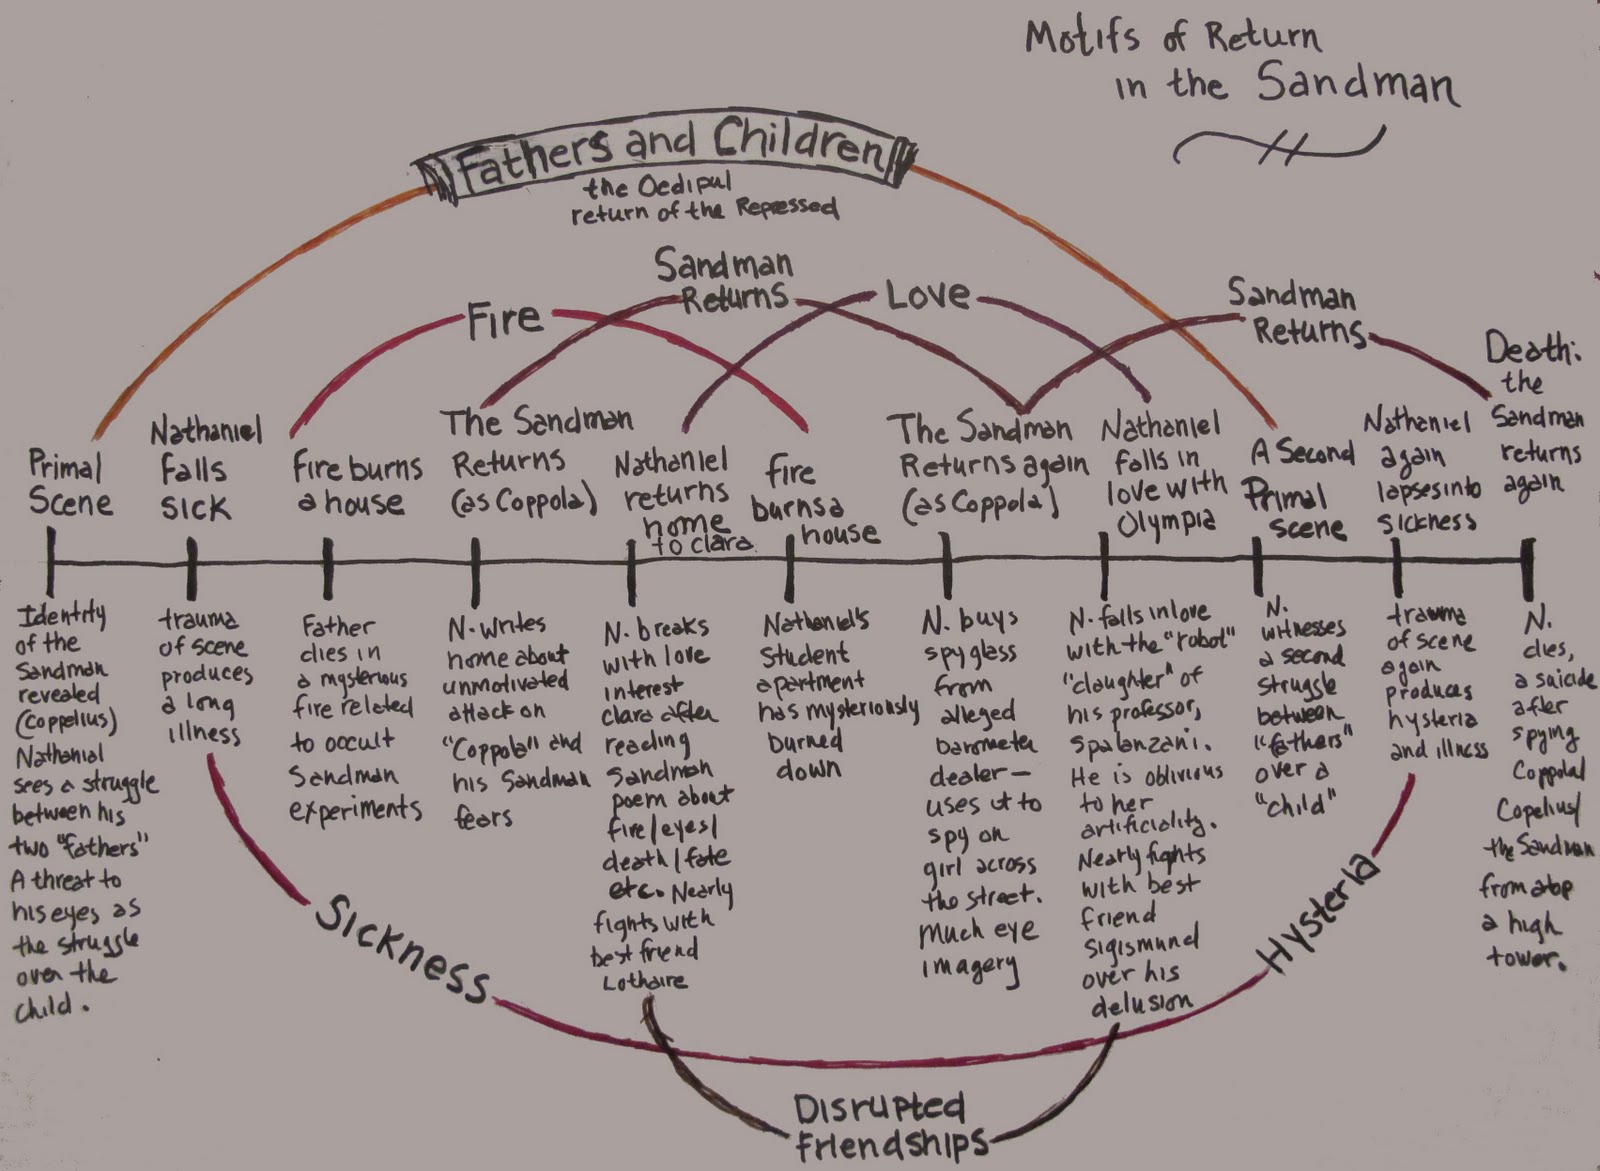 Motifs of Return
in the Sandman
Fathers and Children
the Oedipul
return of the Repressed
Fire
Sandman
Returns
Love
Sandman
Returns
Primal
Scene
Nathaniel
falls
sick
Fire burns
a house
The Sandman
Returns
(as Coppola)
Nathaniel
returns
home
to clara.
fire
burns a
house
The Sandman
Returns again
(as Coppola)
Nathaniel
falls in
love with
Olympia
A Second
Primal
scene
Nathaniel
again
lapses into
sickness
Death:
the
Sandman
returns
again
Identity
of the
Sandman
revealed
(Coppelius)
Nathanial
sees a struggle
between his
two "fathers"
A threat to
his eyes as
the struggle
over the
child.
trauma
of scene
produces
a long
illness
Father
dies in
a mysterious
fire related
to occult
Sandman
experiments
N. writes
home about
unmotivated
attack on
"Coppola" and
his Sandman
fears
N. breaks
with love
interest
clara after
reading
Sandman
poem about
fire/eyes/
death/fate
etc. Nearly
fights with
best friend
Lothaire
Nathaniel's
student
apartment
has mysteriously
burned
down
N. buys
spyglass
from
alleged
barometer
dealer—
uses it to
spy on
girl across
the street.
Much eye
imagery
N. falls in love
with the "robot"
"daughter" of
his professor,
Spalanzani.
He is oblivious
to her
artificiality.
Nearly fights
with best
friend
Sigismund
over his
delusion
N.
witnesses
a second
struggle
between
"fathers"
over a
"child"
trauma
of scene
again
produces
hysteria
and illness
N.
dies,
a suicide
after
spying
Coppola/
Copelius/
the Sandman
from atop
a high
tower.
Sickness
Hysteria
Disrupted
friendships